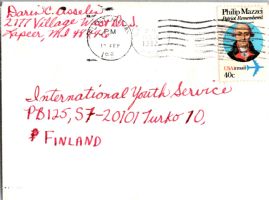 Darin C. Asselin
2177 Village West Dr. S.
Lapeer, MI
PM
SEP
Philip Mazzei
Patriot Remembered
USAirmail
40c
International Youth Service
PB125, SF-20101 Turko 10,
FINLAND